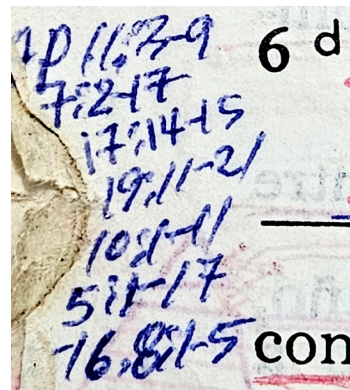 AP 11:3-9
7:2-17
17:14-15
19:11-21
10:1-11
5:1-17
-16,8:1-5
6 d
con